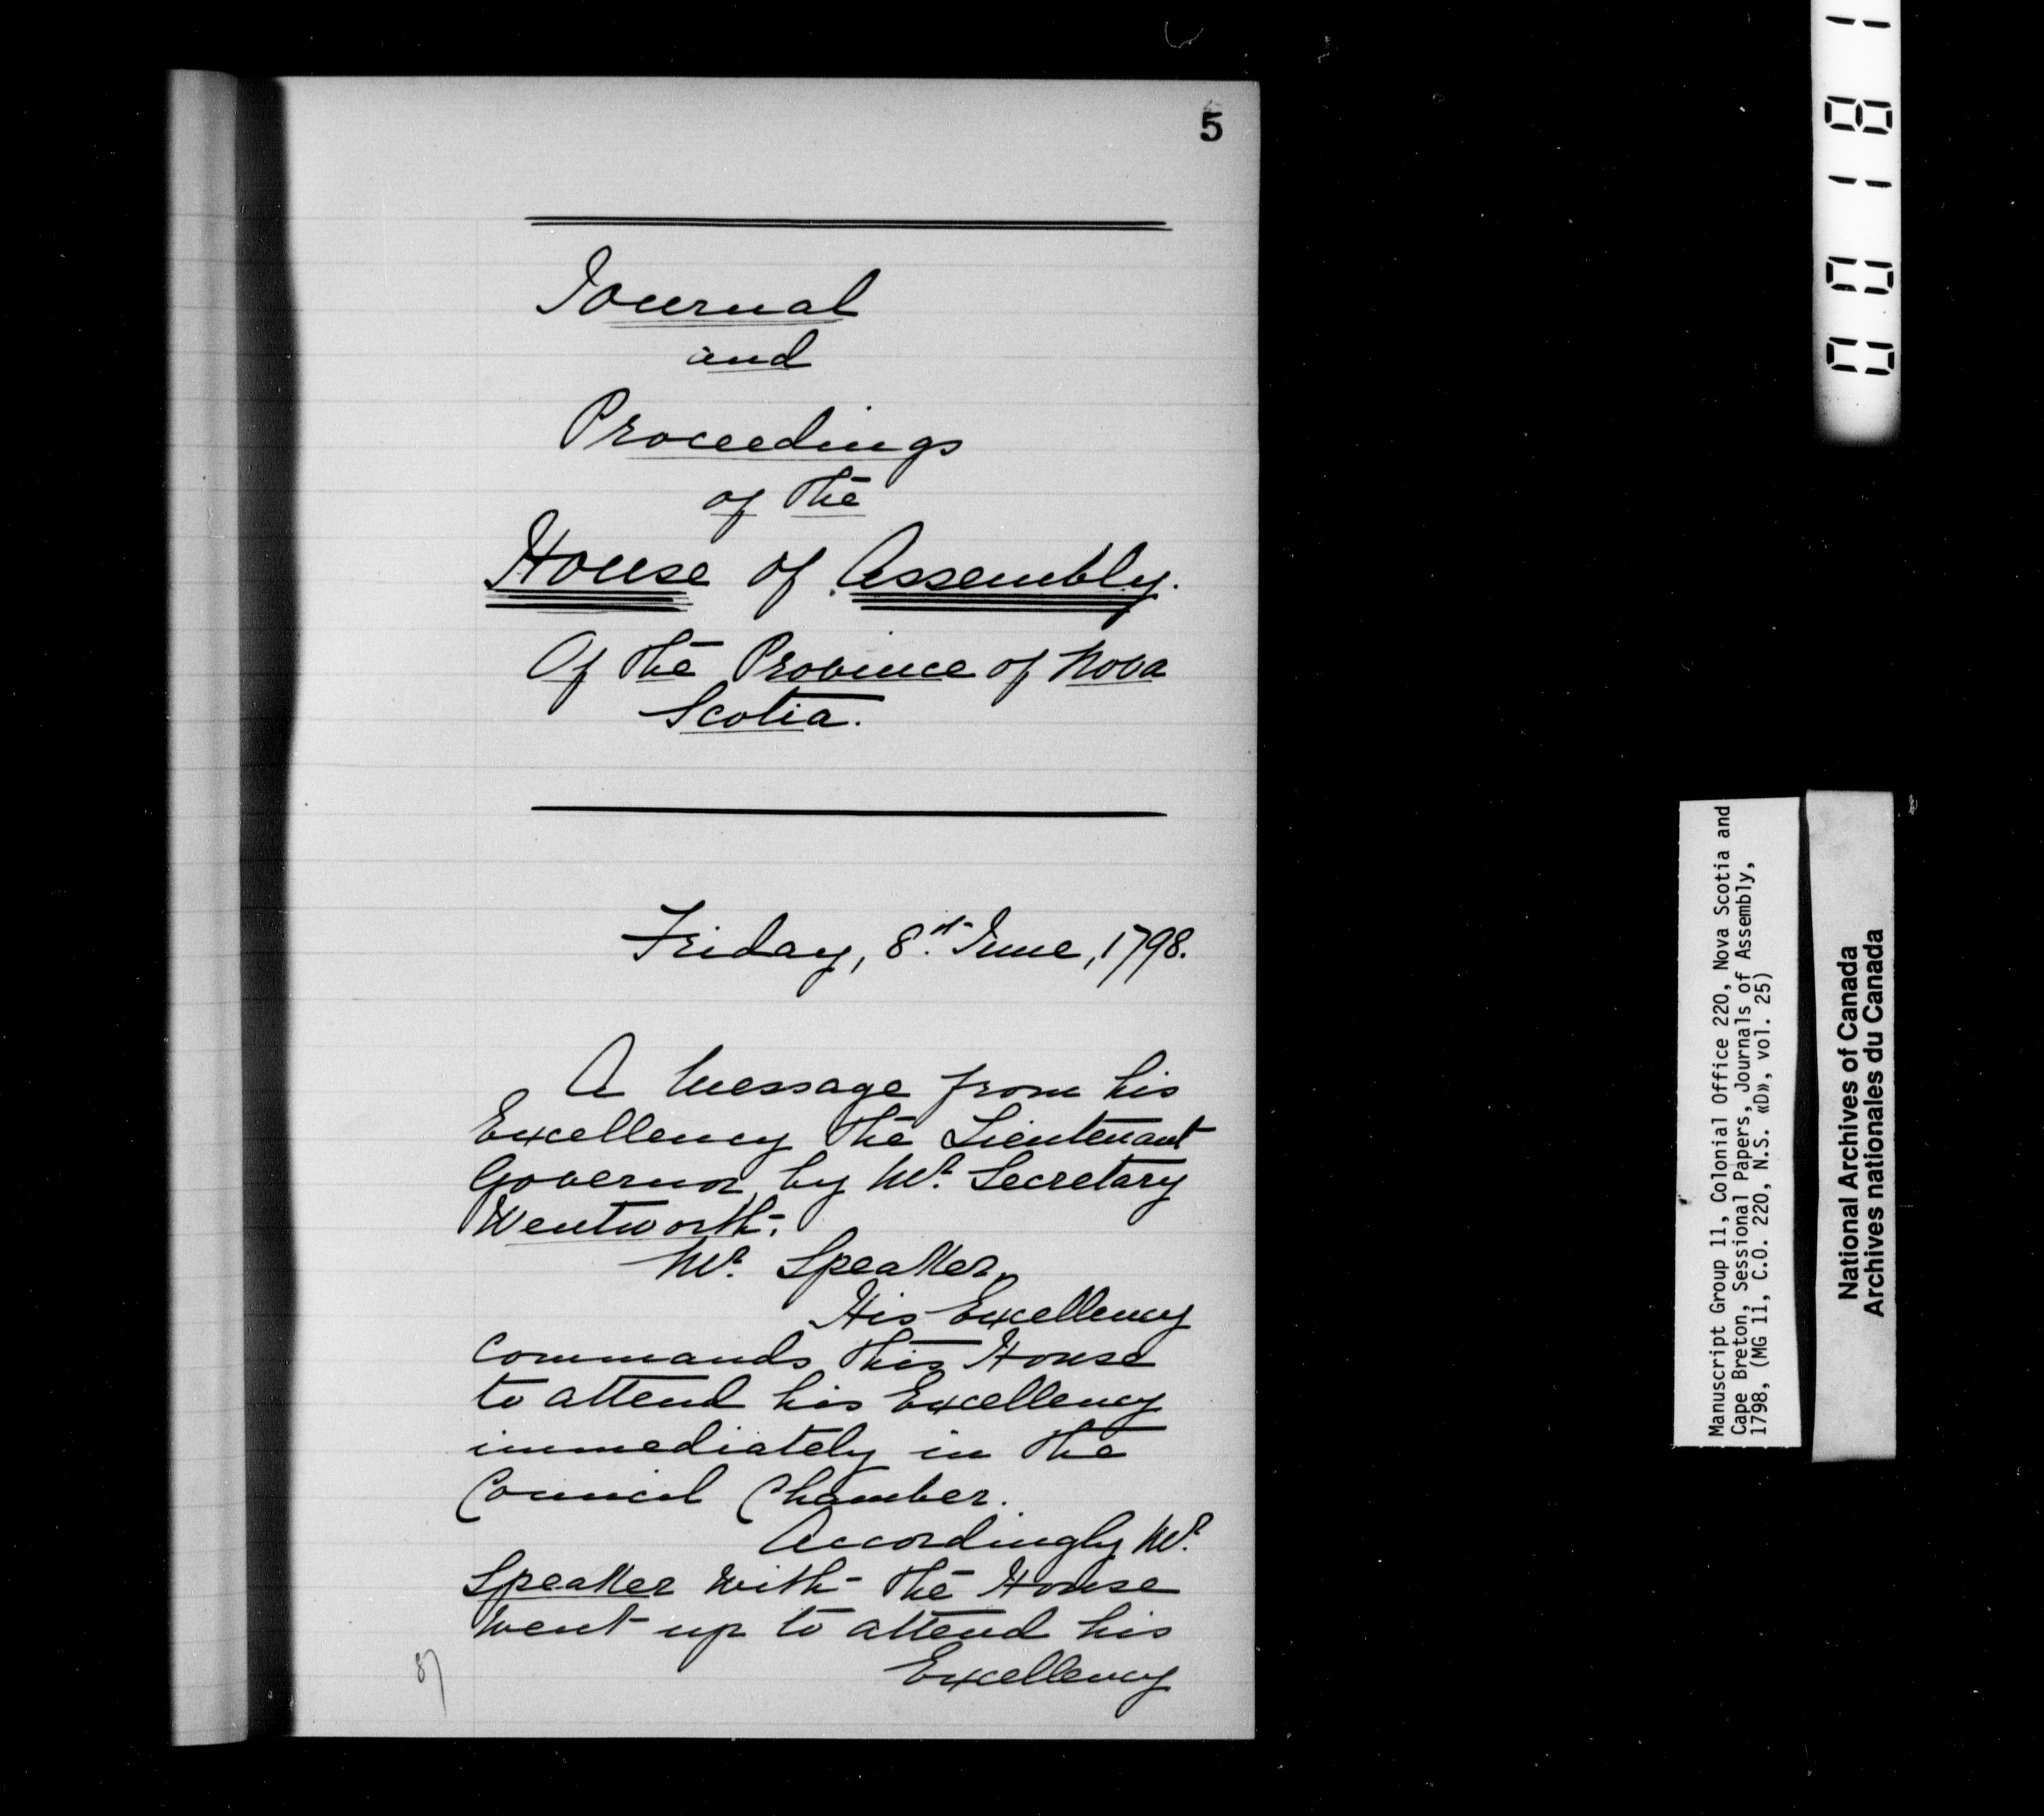 5
Journal
and
Proceedings
of the
House of Assembly.
Of the Province of Nova
Scotia.
Friday, 8.st June, 1798.
A Message from his
Excellency the Lieutenant
Governor, by Mr. Secretary
Wentworth:
Mr. Speaker,
His Excellency
Commands this House
to attend his Excellency
immediately in the
Council Chamber.
Accordingly Mr.
Speaker with the House
went up to attend his
Excellency
00181
Manuscript Group 11, Colonial Office 220, Nova Scotia and
Cape Breton, Sessional Papers, Journals of Assembly,
1798, (MG 11, C.O. 220, N.S. «D», vol. 25)
National Archives of Canada
Archives nationales du Canada